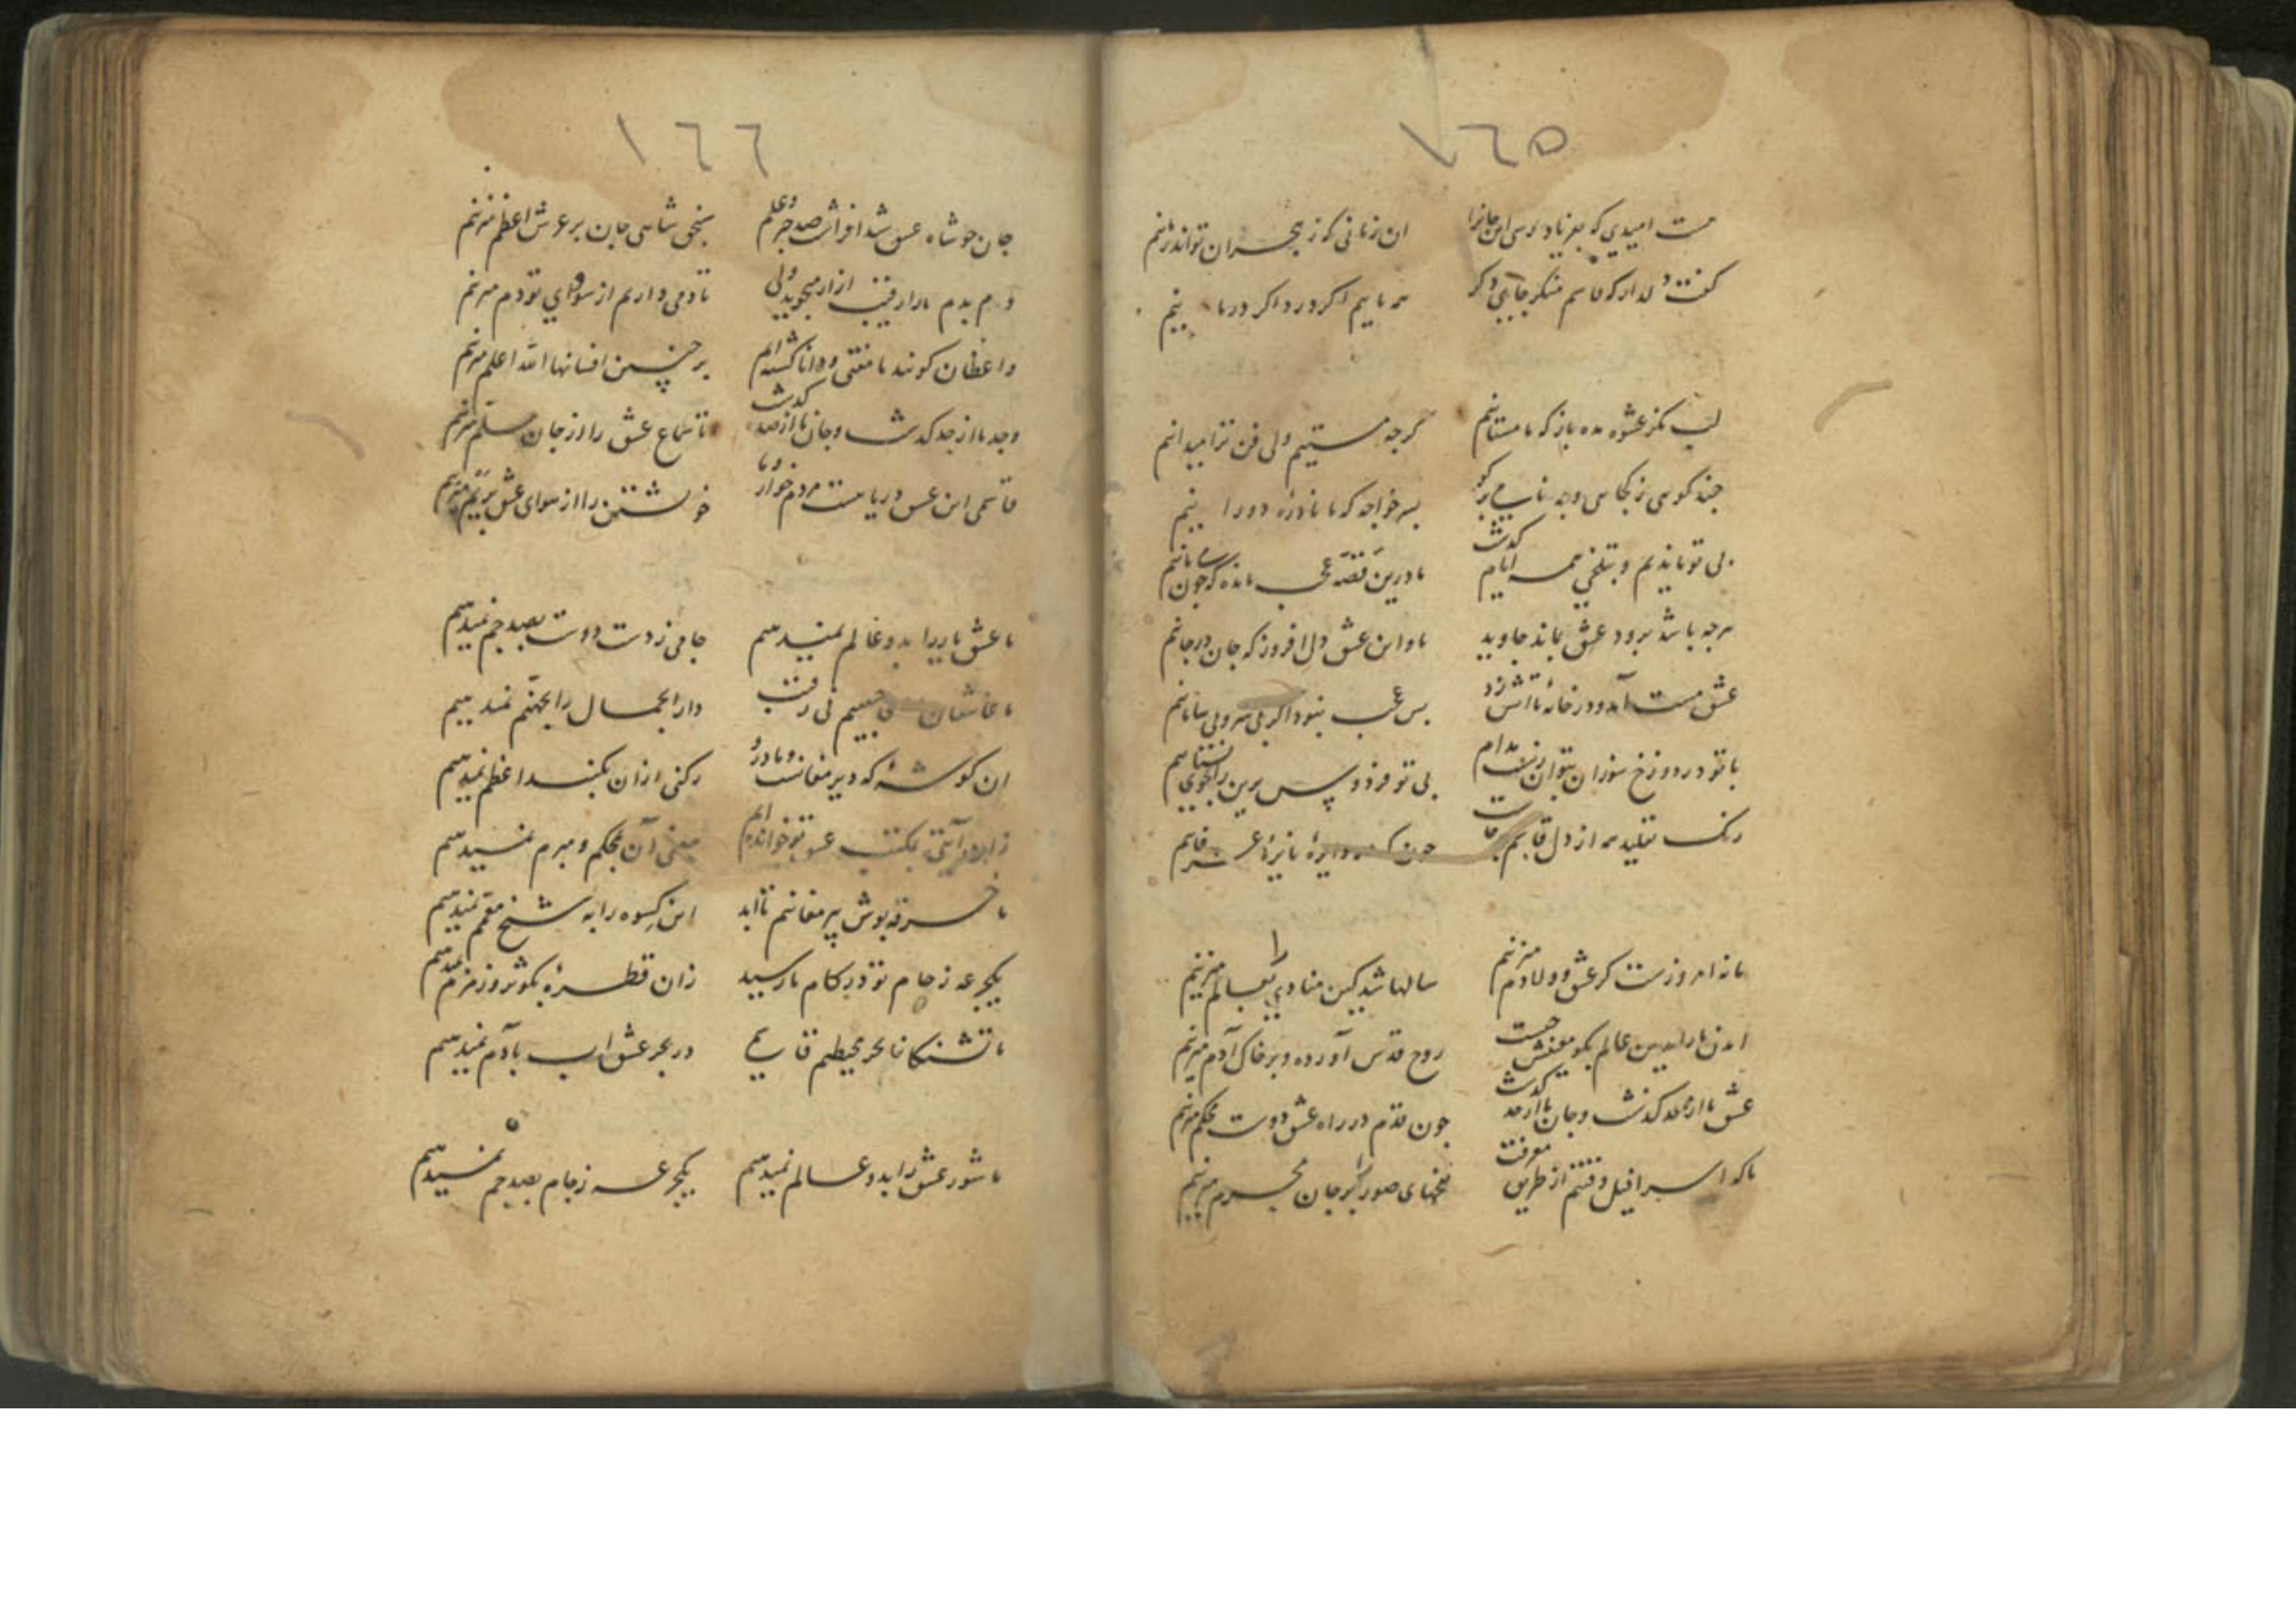 ١٦٥
هست امیدی که بفریاد رسی این جانرا
ان زمانی که ز هجران تو اندر
گفت دلدار که قاسم منکر جای دکر
همه ماییم اکر درد اکر درما نیم
لب مکز عشوه مده باز که ما مستانیم
کرچه مستیم ولی فن ترا میدانیم
چند کوسی ز کجاسی و چه نامی بر کو
بسر خواجه که ما نادره دورا نیم
بی تو ماندیم و بتلخی همه ایام کذشت
ما درین قصه عجب مانده که چون می مانیم
هرچه باشد برود عشق بماند جاوید
ما و این عشق دل افروز که جان در جانیم
عشق مست آمد و در خانه ما اتش زد
بس عجب نبود اکر بی سر و بی سامانیم
با تو در دوزخ سوزان بتوان مدام
بی تو فردوس برین را بجوی نستانیم
رنک تقلید همه از دل قاسم
چون دایره
ما نه امروزست کز عشق و ولا دم میزنیم
سالها شد کین منادی را بعالم میزنیم
آمدن ما را بدین عالم بکو معنیش چیست
روح قدس آورده و بر خاک آدم میزنیم
عشق ما از حد کذشت و جان ما از حد کذشت
چون قدم در راه عشق دوست محکم میزنیم
ما که اسرافیل وقتیم از طریق معرفت
نفخهای صور را بر جان محرم میزنیم
١٦٦
جان چو شاه عشق شد افراشت صد چتر و علم
پنج شاهی جان بر عرش اعظم میزنیم
دم بدم ما را رقیب ازار میجوید ولی
تا دمی داریم از سودای تو دم میزنیم
واعظان کویند ما مفتی و دانا کشته ایم
بر چنین افسانها الله اعلم میزنیم
وجد ما از حد کذشت و جان ما از صد کذشت
تا سماع عشق را از جان مسلم میزنیم
قاسمی این عشق دریا هست مردم خوار و ما
خویشتن را از هوای عشق بر یم میزنیم
ما عشق یار را بدو عالم نمیدهیم
جامی ز دست دوست بصد جم نمیدهیم
ما عاشقان حبیبیم نی رقیب
دار الجمال را بجهنم نمیدهیم
ان کوشه که دیر مغانست و ما درو
رکنی ازان بکنبد اعظم نمیدهیم
زاهد آیتی بمکتب عشق تو خوانده ایم
معنی آن بمحکم و مبرم نمیدهیم
ما خرقه پوش پیر مغانیم تا ابد
این کسوه را به شیخ معمم نمیدهیم
یکجرعه ز جام تو در کام ما رسید
زان قطره بکوثر و زمزم نمیدهیم
ما تشنکان بحر محیطیم قاسمی
در بحر عشق اب بآدم نمیدهیم
ما شور عشق را بدو عالم نمیدهیم
یکجرعه ز جام بصد جم نمیدهیم